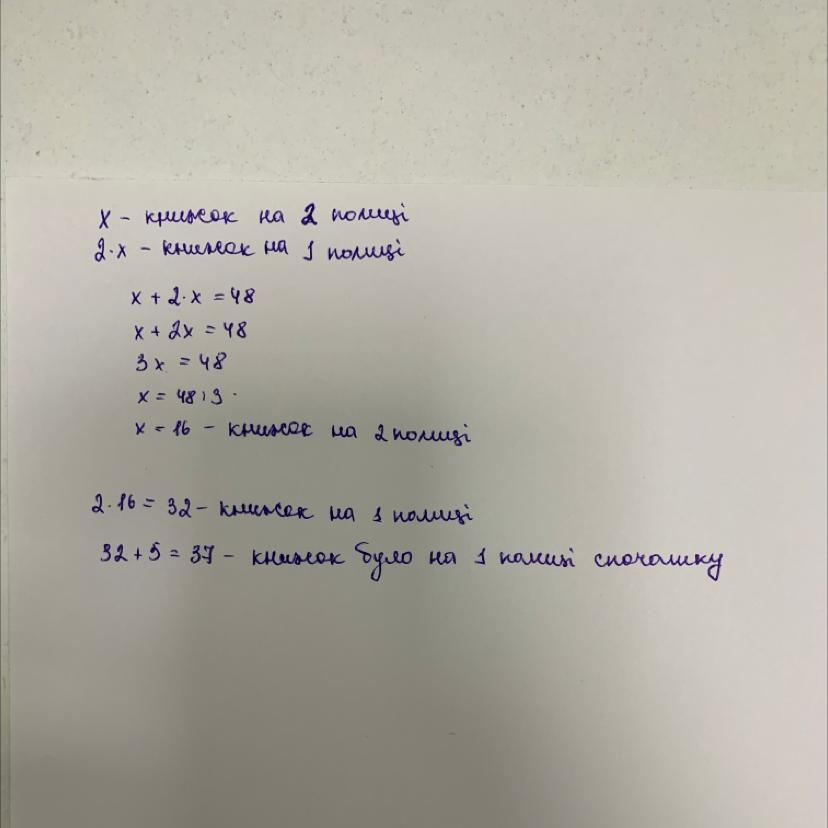 х - книжок на 2 полиці
2·х - книжок на 1 полиці
х + 2·х = 48
х + 2х = 48
3х = 48
х = 48:3
х = 16 - книжок на 2 полиці
2·16 = 32 - книжок на 1 полиці
32 + 5 = 37 - книжок було на 1 полиці спочатку